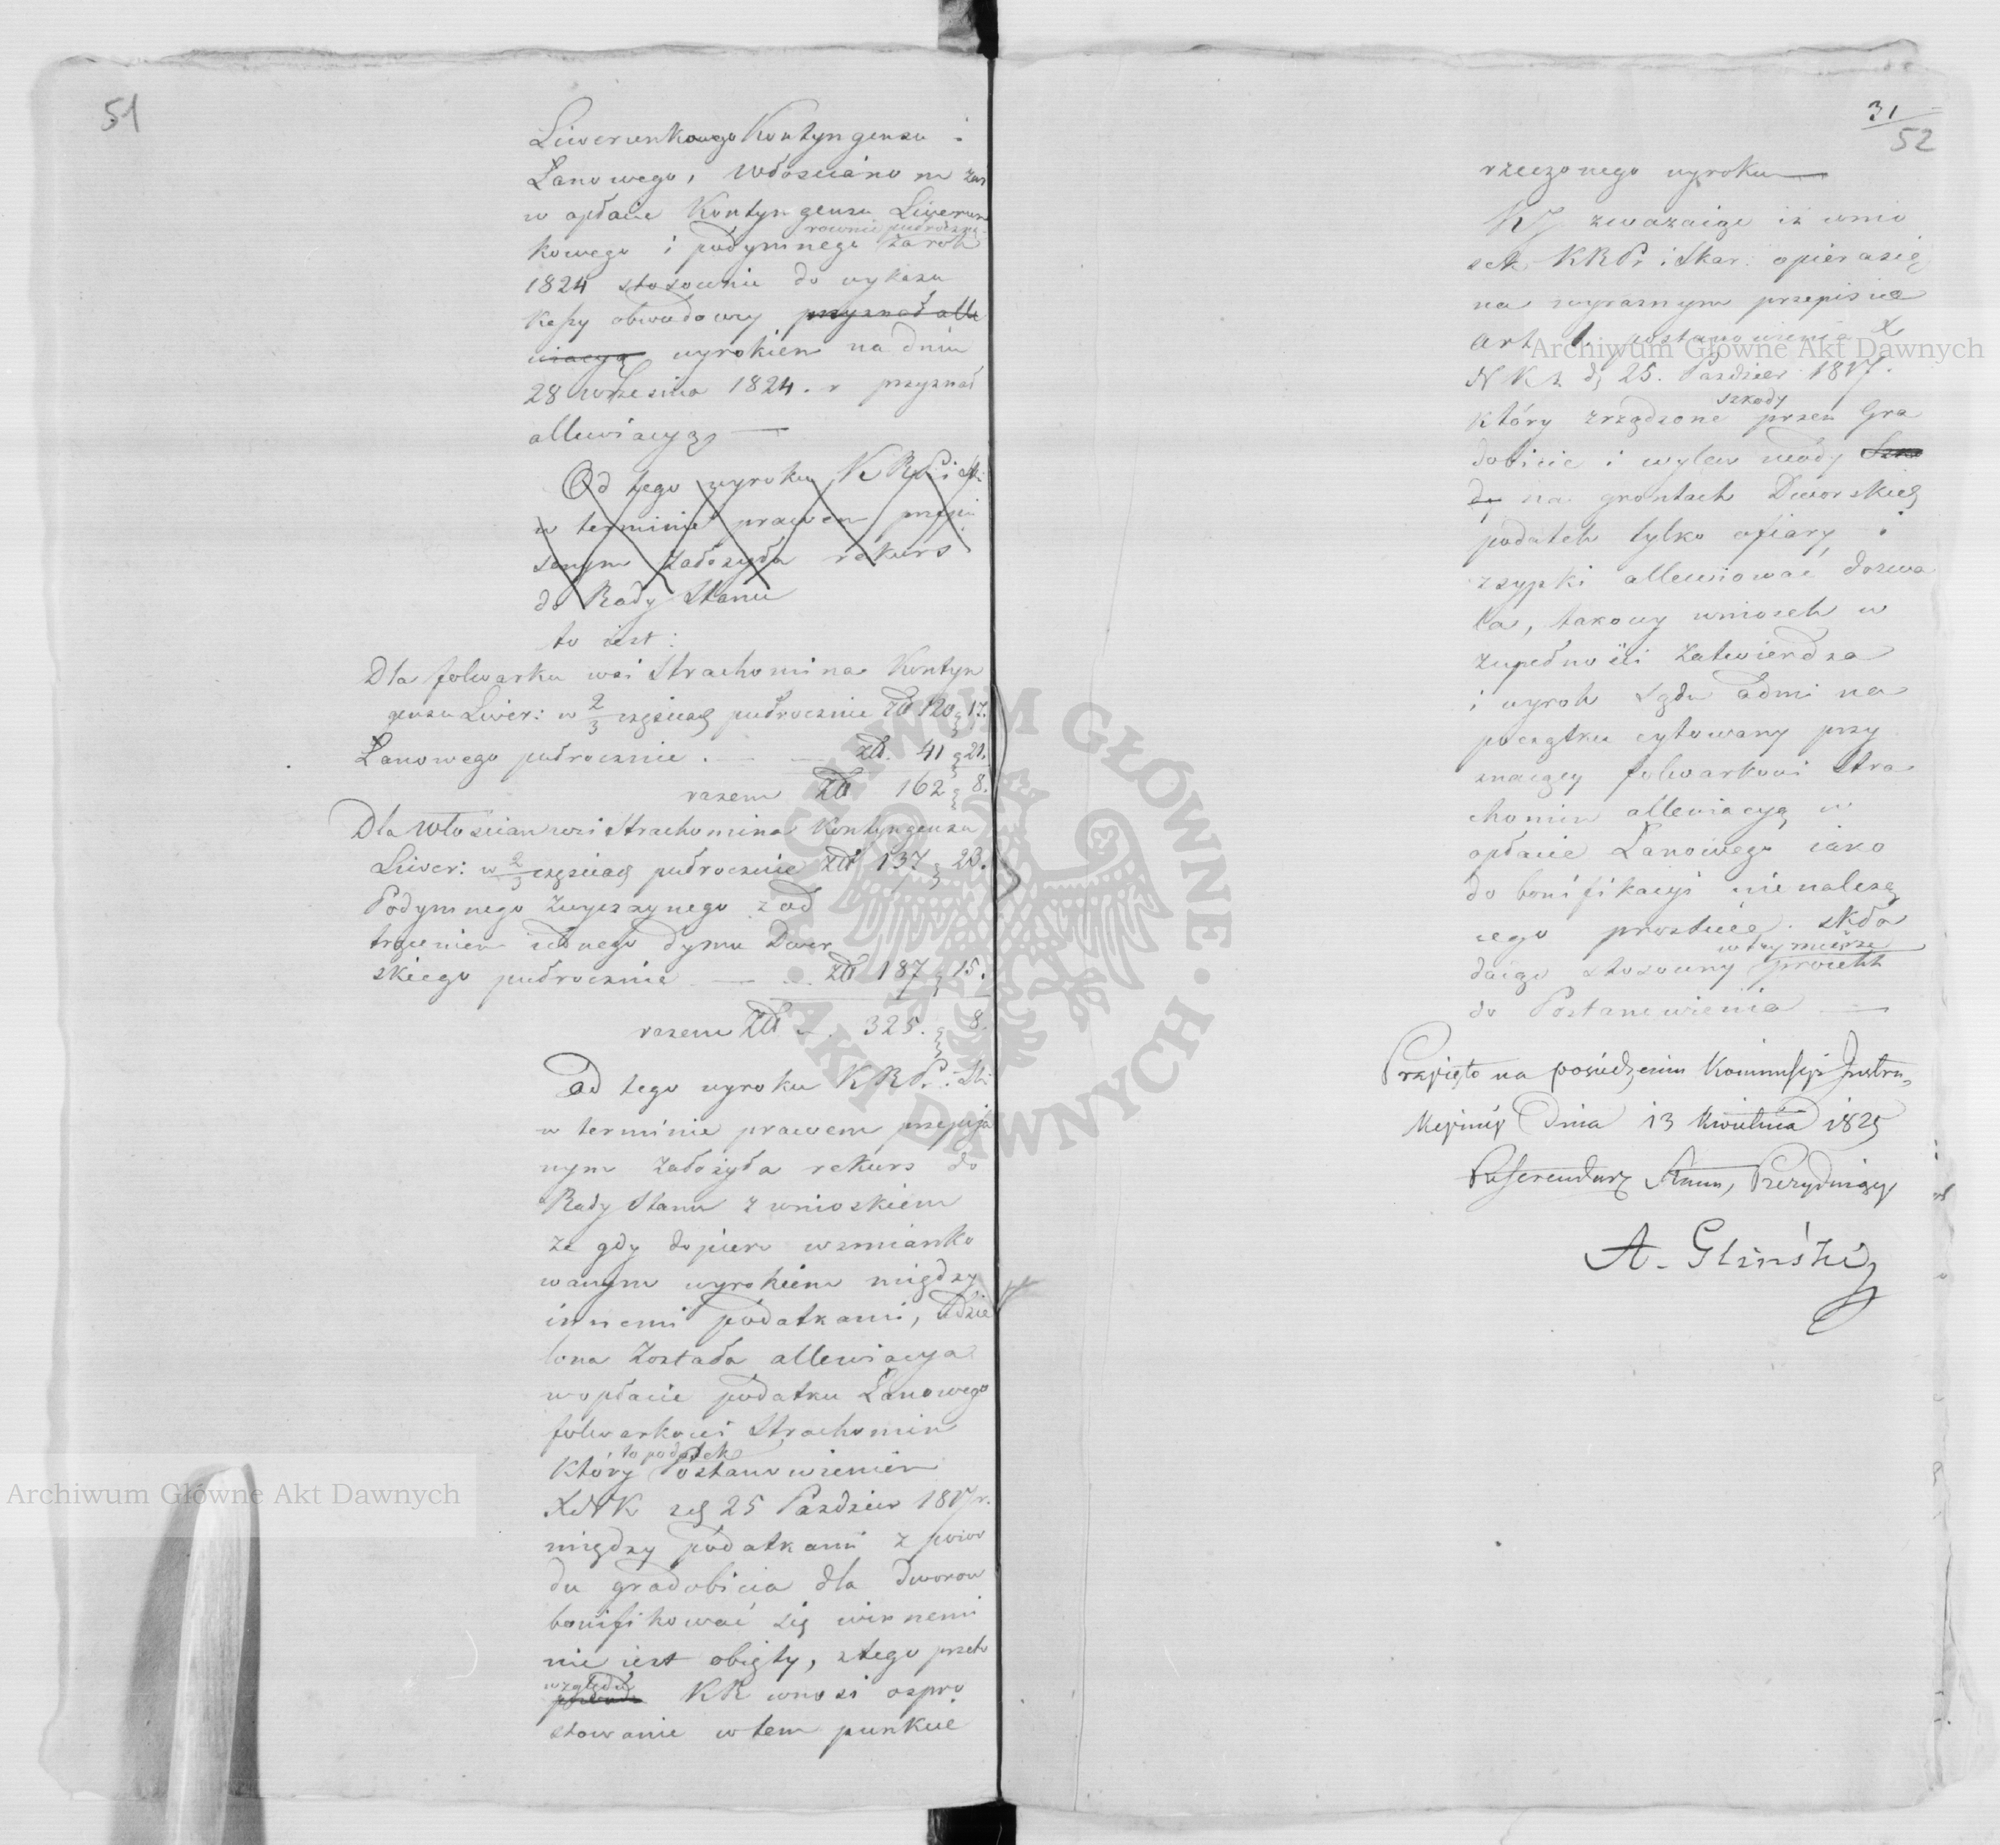 51
Liwerunkowego Kontyngensu i
Łanowego, Włościanom zaś
w opłacie Kontyngensu Liwerun
rownie pułroczne
kowego i podymnego za rok
1824 stosownie do wykazu
Kassy obwodowey przyznał alle
wiacyą wyrokiem na dniu
28 Września 1824. r przyznał
allewiacyą —
Od tego wyroku K R P i Sk:
w terminie prawem przepi
sanym założyła rekurs
do Rady Stanu
to iest:
Dla folwarku wsi Strachomina Kontyn
gensu Liwer: w 2/3 częściach pułrocznie Złł 120 g 17.
Łanowego pułrocznie . — — złł. 41 g 21.
razem Złł 162 g 8.
Dla Włościan wsi Strachomina Kontyngensu
Liwer: w 2/3 częściach pułrocznie złł 137 g 23.
Podymnego zwyczaynego z od
trąceniem iednego dymu Dwor
skiego pułrocznie — ... złł 187 g 15.
razem Złł — . 325. g 8.
Od tego wyroku K R P. i Sk:
w terminie prawem przepisa
nym założyła rekurs do
Rady Stanu z wnioskiem
że gdy dopiero wzmianko
wanym wyrokiem między
innemi podatkami, udzie
lona została allewiacya
w opłacie podatku Łanowego
folwarkowi Strachomin
to podatek
Który Postanowieniem
XNK z d 25 Paździer 1817 r.
między podatkami z powo
du gradobicia dla dworow
bonifikować się winnemi
nie iest obięty, z tego przeto
względu
KR wnosi o spro
stowanie w tem punkcie
31
52
rzeczonego wyroku —
KJ zważaiąc iż wnio
sek KRP i Skar: opiera się
na wyraznym przepisie
Art 1. postanowienia X
NK z d 25. Paździer 1817.
szkody
który zrządzone przez Gra
dobicie i wylew wody Szko
dy na gruntach Dworskich
podatek tylko ofiary i
zsypki allewiować dozwa
la, takowy wniosek w
zupełności zatwierdza
i wyrok Sądu Admi na
początku cytowany przy
znaiący folwarkowi Stra
chomin allewiacyą w
opłacie Łanowego iako
do bonifikacyi nienależą
cego prostuie. skła
w tey mierze
daiąc stosowny proiekt
do Postanowienia —
Przyięto na posiedzeniu Kommissyi Instru,
kcyiney Dnia 13 Kwietnia 1825
Referendarz Stanu, Prezyduiący
A. Gliński